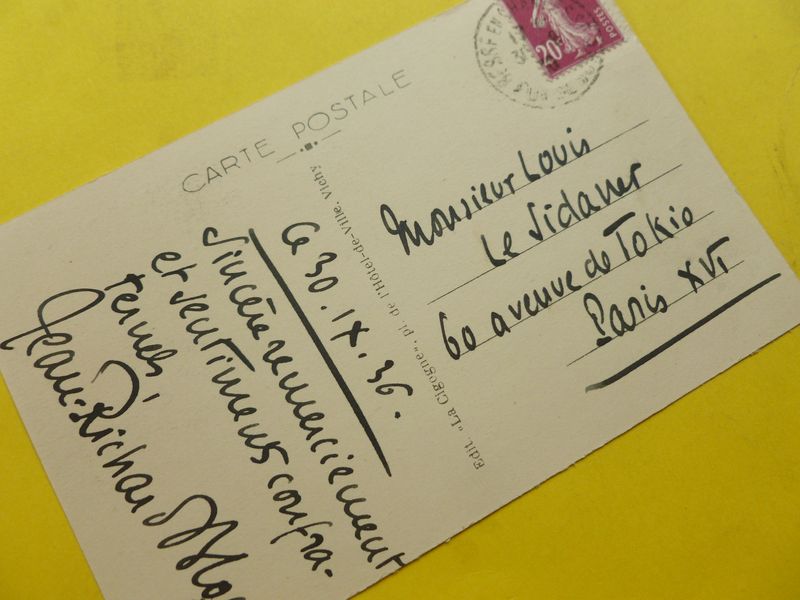 CARTE POSTALE
20c
POSTES
Monsieur Louis
Le Sidaner
60 avenue de Tokio
Paris XVI
Edit. "La Cigogne", pl. de l'Hôtel-de-Ville, Vichy
Ce 30. IX. 36.
Sincère remerciement
et sentiments confra-
ternels,
Jean-Richard Bloc